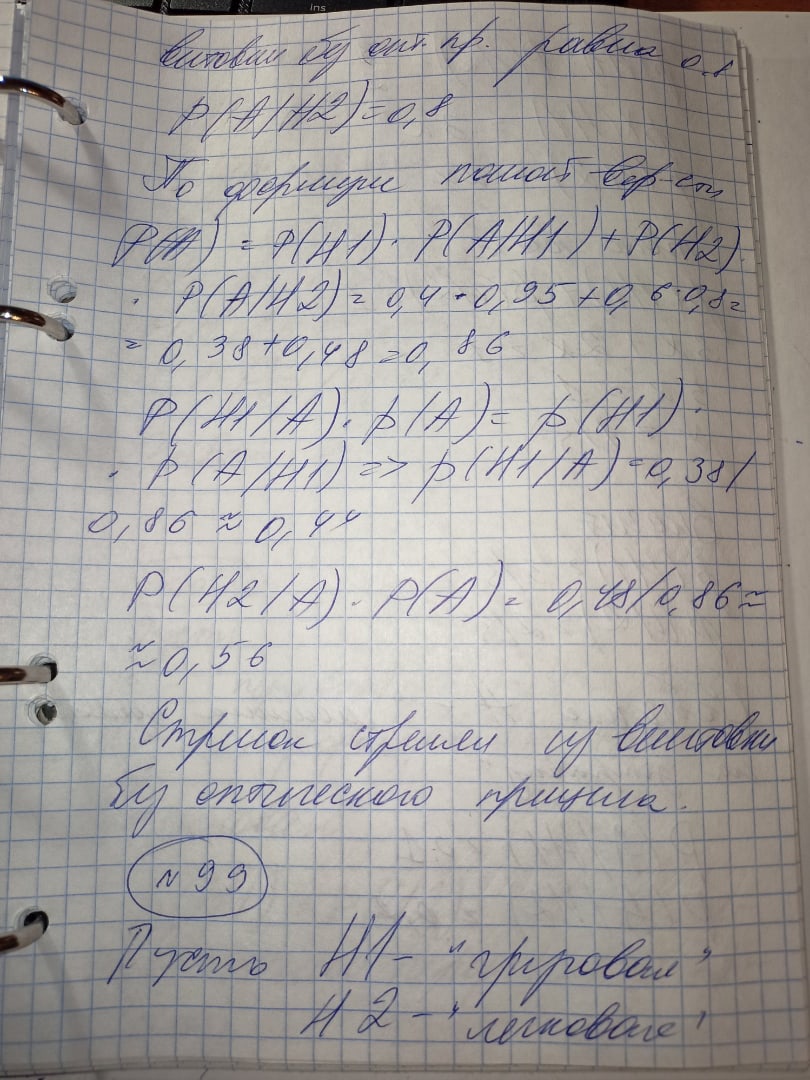 ins
винтовки без опт. пр. равна 0.8
P(A/H2)=0,8
По формуле полной вер-сти
P(A) = P(H1) · P(A/H1) + P(H2) ·
· P(A/H2) = 0,4 · 0,95 + 0,6·0,8=
= 0,38+0,48=0,86
P(H1/A) · p(A) = p(H1) ·
· P(A/H1) => p(H1/A)=0,38/
0,86 ≈ 0,44
P(H2/A) · P(A) = 0,48/0,86≈
≈ 0,56
Стрелок стрелял из винтовки
без оптического прицела.
№99
Пусть H1 - "грузовая"
H2 - "легковая"